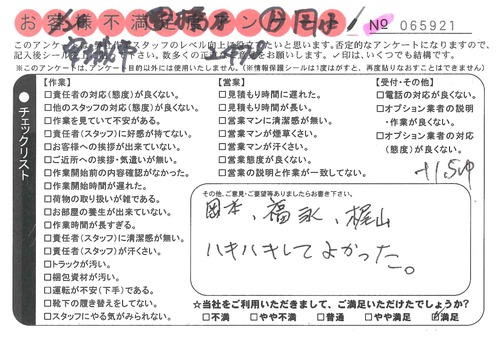 お客様不満足度アンケート
No 065921
このアンケートは、
スタッフのレベル向上に役立てたいと思います。否定的なアンケートになりますので、
記入後シール
下さい。数多くの正
意見をお願いします。✓印は、いくつでも結構です。
※このアンケートは、アンケート目的以外には使用いたしません。(※情報保護シールは1度はがすと、再度貼りなおすことはできません)
●チェックリスト
【作業】
□責任者の対応(態度)が良くない。
□他のスタッフの対応(態度)が良くない。
□作業を見ていて不安がある。
□責任者(スタッフ)に好感が持てない。
□お客様への挨拶が出来ていない。
□ご近所への挨拶・気遣いが無い。
□作業開始前の内容確認がなかった。
□作業開始時間が遅れた。
□荷物の取り扱いが雑である。
□お部屋の養生が出来ていない。
□作業時間が長すぎる。
□責任者(スタッフ)に清潔感が無い。
□責任者(スタッフ)が汗くさい。
□トラックが汚い。
□梱包資材が汚い。
□運転が不安(下手)である。
□靴下の履き替えをしてない。
□スタッフにやる気がみられない。
【営業】
□見積もり時間に遅れた。
□見積もり時間が長い。
□営業マンに清潔感が無い。
□営業マンが煙草くさい。
□営業マンが汗くさい。
□営業態度が良くない。
□営業の説明と作業が一致してない。
【受付・その他】
□電話の対応が良くない。
□オプション業者の説明
・作業が良くない。
□オプション業者の対応
(態度)が良くない。
その他、ご意見・ご要望等ありましたらお書き下さい。
岡本、福永、梶山
ハキハキしてよかった。
☆当社をご利用いただきまして、ご満足いただけたでしょうか?
□不満 □やや不満 □普通 □やや満足 ☑満足